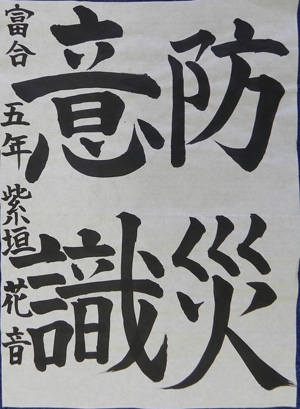 防災
意識
富合 五年 紫垣 花音